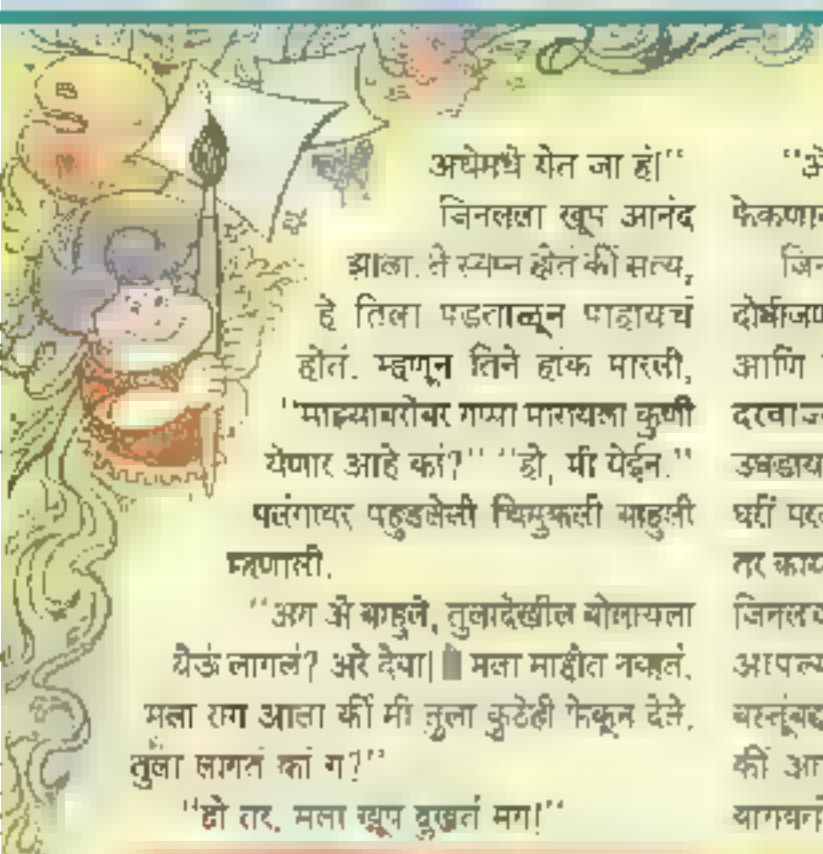 अधेमधे येत जा हं!''
जिनलला खूप आनंद
झाला. ते स्वप्न होतं कीं सत्य,
हे तिला पडताळून पाहायचं
होतं. म्हणून तिने हांक मारली,
''माझ्याबरोबर गप्पा मारायला कुणी
येणार आहे कां?'' ''हो, मी येईन.''
पलंगावर पहुडलेली चिमुकली बाहुली
म्हणाली.
''अग अे बाहुले, तुलादेखील बोलायला
येऊं लागलं? अरे देवा! मला माहीत नव्हतं.
मला राग आला कीं मी तुला कुठेही फेकून देते.
तुला लागतं कां ग?''
''हो तर. मला खूप दुखतं मग!''
दोघीजण
आणि
घरीं
तर
कीं